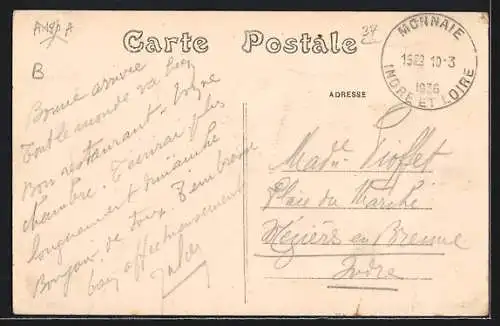 Carte Postale
37
B
ADRESSE
MONNAIE
10-3
1936
INDRE ET LOIRE
Bonne arrivée
Tout le monde va bien
Bon restaurant
chambre. T'écrirai plus
longuement dimanche
de tous. T'embrasse
bien affectueusement
Madᵉ
Place du Marché
Mézières en Brenne
Indre